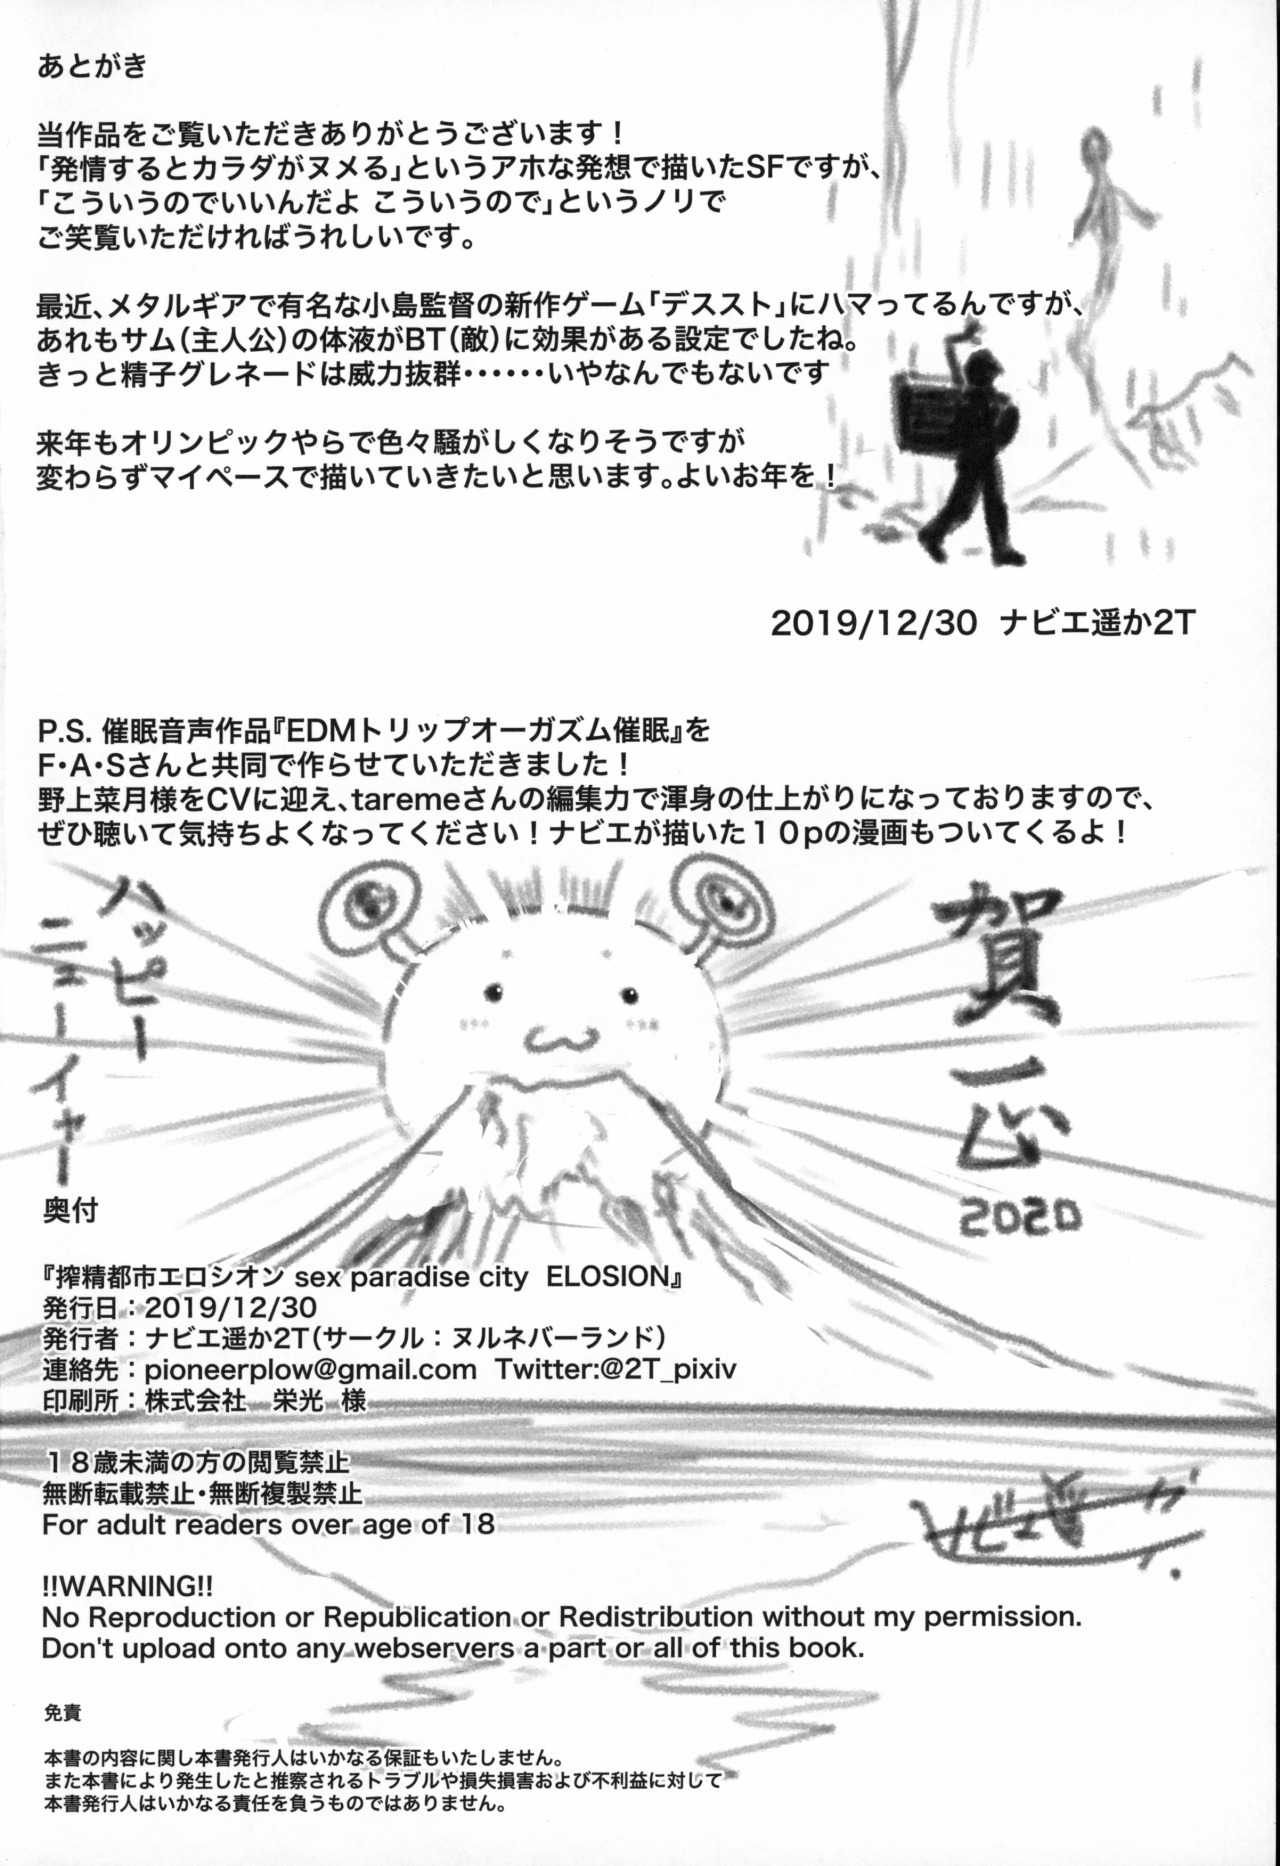 あとがき
当作品をご覧いただきありがとうございます！
「発情するとカラダがヌメる」というアホな発想で描いたSFですが、
「こういうのでいいんだよ こういうので」というノリで
ご笑覧いただければうれしいです。
最近、メタルギアで有名な小島監督の新作ゲーム「デススト」にハマってるんですが、
あれもサム（主人公）の体液がBT（敵）に効果がある設定でしたね。
きっと精子グレネードは威力抜群・・・・・・いやなんでもないです
来年もオリンピックやらで色々騒がしくなりそうですが
変わらずマイペースで描いていきたいと思います。よいお年を！
2019/12/30 ナビエ遥か2T
P.S. 催眠音声作品『EDMトリップオーガズム催眠』を
F・A・Sさんと共同で作らせていただきました！
野上菜月様をCVに迎え、taremeさんの編集力で渾身の仕上がりになっておりますので、
ぜひ聴いて気持ちよくなってください！ナビエが描いた１０pの漫画もついてくるよ！
ハッピー
ニューイヤー
賀正
2020
奥付
『搾精都市エロシオン sex paradise city ELOSION』
発行日：2019/12/30
発行者：ナビエ遥か2T（サークル：ヌルネバーランド）
連絡先：pioneerplow@gmail.com Twitter:@2T_pixiv
印刷所：株式会社　栄光 様
１８歳未満の方の閲覧禁止
無断転載禁止・無断複製禁止
For adult readers over age of 18
!!WARNING!!
No Reproduction or Republication or Redistribution without my permission.
Don't upload onto any webservers a part or all of this book.
免責
本書の内容に関し本書発行人はいかなる保証もいたしません。
また本書により発生したと推察されるトラブルや損失損害および不利益に対して
本書発行人はいかなる責任を負うものではありません。